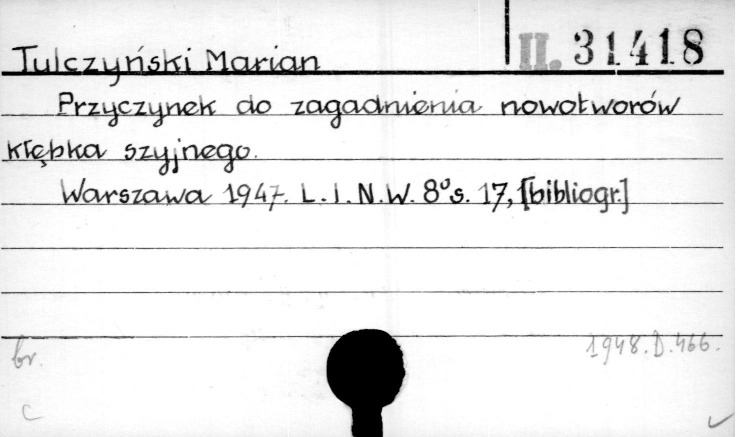 II. 31418
Tulczyński Marian
Przyczynek do zagadnienia nowotworów
kłębka szyjnego.
Warszawa 1947. L.I.N.W. 8° s. 17, [bibliogr.]
br.
1948.D.466.
c